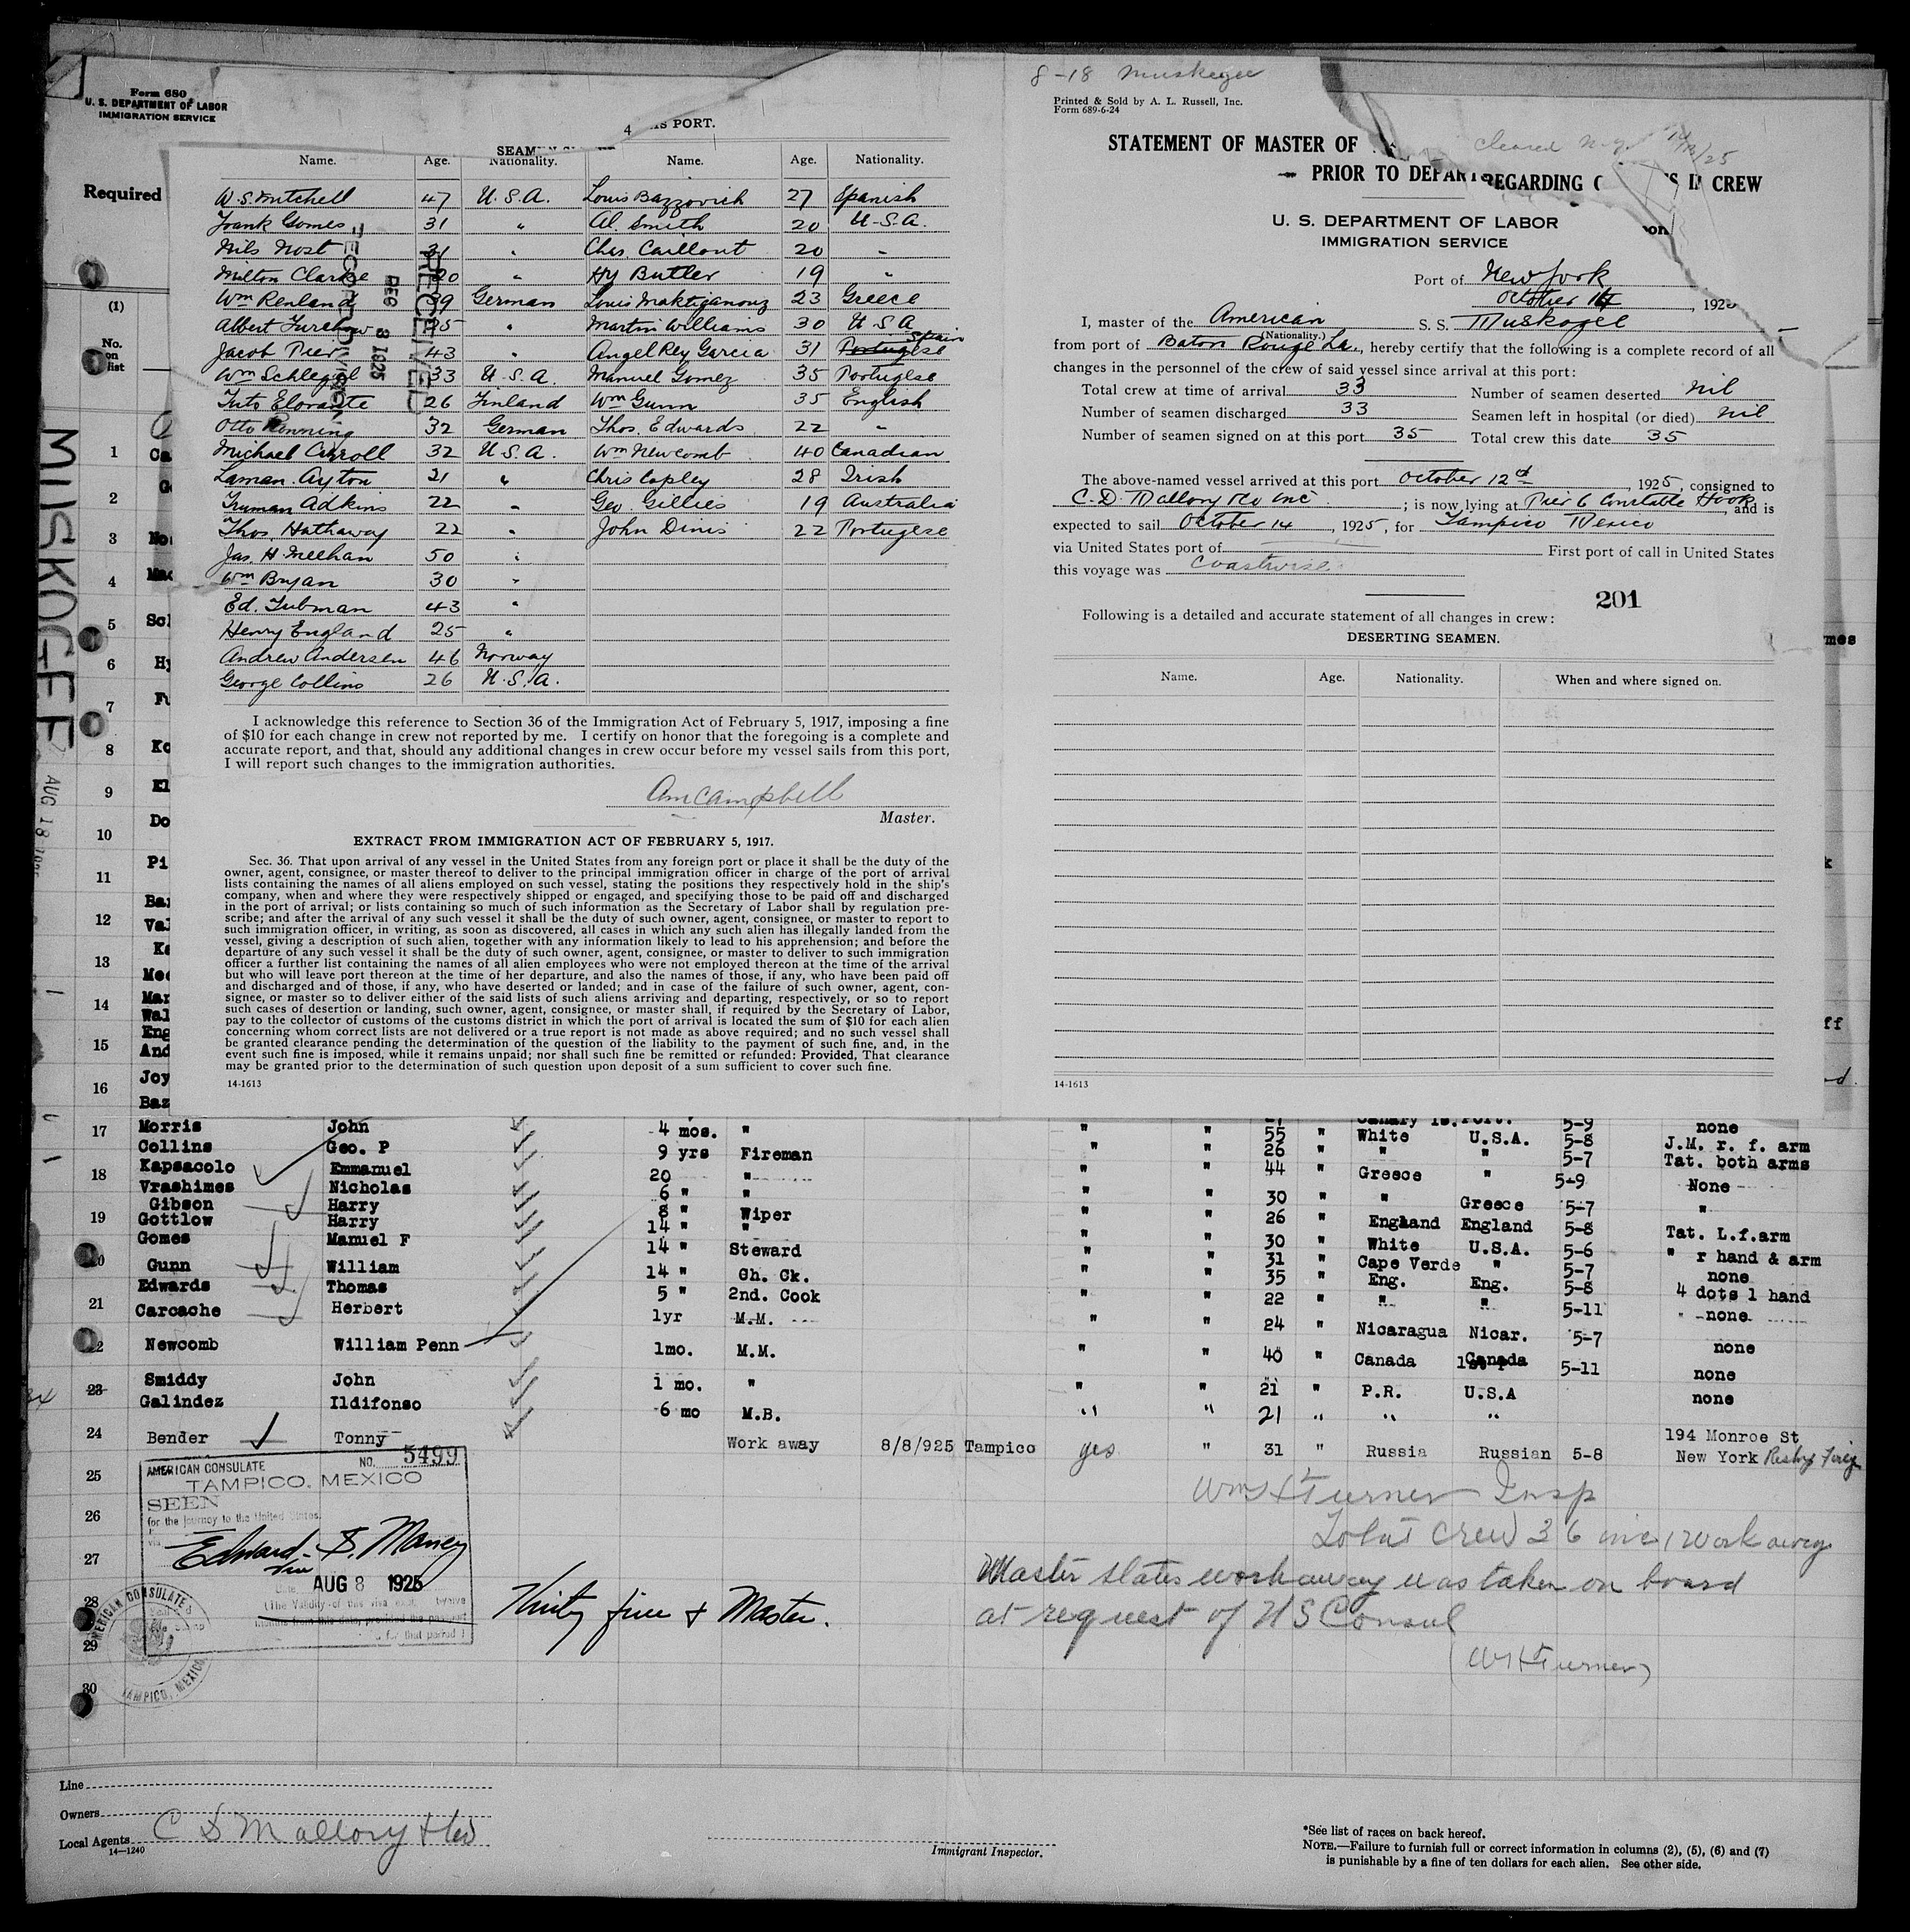 Form 680
U. S. DEPARTMENT OF LABOR
IMMIGRATION SERVICE
Required
(1)
No. on list
MUSKOGEE
AUG 18
4
IS PORT.
SEAM
Name. Age. Nationality. Name. Age. Nationality.
W. S. Mitchell 47 U.S.A. Louis Bazzovich 27 Spanish
Frank Gomes 31 " Al. Smith 20 U-S.A.
Nils Nost 31 " Chas. Caillout 20 "
Milton Clarke 20 " Hy Butler 19 "
Wm Renland 39 German Louis 23 Greece
Albert 35 " Martin Williams 30 U S A
Jacob Pier 43 " Angel Rey Garcia 31 Portugese Spain
Wm Schlegel 33 U.S.A. Manuel Gomez 35 Portugese
26 Finland Wm Gunn 35 English
Otto Henning 32 German Thos. Edwards 22 "
Michael Carroll 32 U.S.A. Wm Newcomb 40 Canadian
Laman Ayton 21 " Chris Copley 28 Irish
Truman Adkins 22 " Geo. Gillies 19 Australia
Thos. Hathaway 22 " John Dinis 22 Portugese
Jas. H. Meehan 50 "
Wm Bryan 30 "
Ed. Tubman 43 "
Henry England 25 "
Andrew Andersen 46 Norway
George Collins 26 U.S.A.
RECEIVED
DEC 3 1925
RECORD DIVISION
I acknowledge this reference to Section 36 of the Immigration Act of February 5, 1917, imposing a fine
of $10 for each change in crew not reported by me. I certify on honor that the foregoing is a complete and
accurate report, and that, should any additional changes in crew occur before my vessel sails from this port,
I will report such changes to the immigration authorities.
AmCampbell
Master.
EXTRACT FROM IMMIGRATION ACT OF FEBRUARY 5, 1917.
Sec. 36. That upon arrival of any vessel in the United States from any foreign port or place it shall be the duty of the
owner, agent, consignee, or master thereof to deliver to the principal immigration officer in charge of the port of arrival
lists containing the names of all aliens employed on such vessel, stating the positions they respectively hold in the ship's
company, when and where they were respectively shipped or engaged, and specifying those to be paid off and discharged
in the port of arrival; or lists containing so much of such information as the Secretary of Labor shall by regulation pre-
scribe; and after the arrival of any such vessel it shall be the duty of such owner, agent, consignee, or master to report to
such immigration officer, in writing, as soon as discovered, all cases in which any such alien has illegally landed from the
vessel, giving a description of such alien, together with any information likely to lead to his apprehension; and before the
departure of any such vessel it shall be the duty of such owner, agent, consignee, or master to deliver to such immigration
officer a further list containing the names of all alien employees who were not employed thereon at the time of the arrival
but who will leave port thereon at the time of her departure, and also the names of those, if any, who have been paid off
and discharged and of those, if any, who have deserted or landed; and in case of the failure of such owner, agent, con-
signee, or master so to deliver either of the said lists of such aliens arriving and departing, respectively, or so to report
such cases of desertion or landing, such owner, agent, consignee, or master shall, if required by the Secretary of Labor,
pay to the collector of customs of the customs district in which the port of arrival is located the sum of $10 for each alien
concerning whom correct lists are not delivered or a true report is not made as above required; and no such vessel shall
be granted clearance pending the determination of the question of the liability to the payment of such fine, and, in the
event such fine is imposed, while it remains unpaid; nor shall such fine be remitted or refunded: Provided, That clearance
may be granted prior to the determination of such question upon deposit of a sum sufficient to cover such fine.
14-1613
8-18 Muskogee
Printed & Sold by A. L. Russell, Inc.
Form 689-6-24
cleared N.Y. 14/10/25
STATEMENT OF MASTER OF
PRIOR TO DEPART REGARDING C S IN CREW
U. S. DEPARTMENT OF LABOR
IMMIGRATION SERVICE
Port of New York
October 14, 192
I, master of the American S. S. Muskogee
(Nationality.)
from port of Baton Rouge La., hereby certify that the following is a complete record of all
changes in the personnel of the crew of said vessel since arrival at this port:
Total crew at time of arrival 33 Number of seamen deserted nil
Number of seamen discharged 33 Seamen left in hospital (or died) nil
Number of seamen signed on at this port 35 Total crew this date 35
The above-named vessel arrived at this port October 12th, 1925, consigned to
C. D. Mallory & Co Inc; is now lying at Pier 6 Constable Hook, and is
expected to sail October 14, 1925, for Tampico Mexico
via United States port of First port of call in United States
this voyage was Coastwise
201
Following is a detailed and accurate statement of all changes in crew:
DESERTING SEAMEN.
Name. Age. Nationality. When and where signed on.
14-1613
17 Morris John 4 mos. " " " 55 " White U.S.A. 5-8 none
Collins Geo. P 9 yrs Fireman " " 26 " " " 5-7 J.M. r. f. arm
18 Kapsacolo Emmanuel 20 " " " 44 " Greece " 5-9 Tat. both arms
Vrashimes Nicholas 6 " " " " 30 " " Greece 5-7 None
19 Gibson Harry 8 " Wiper " " 26 " England England 5-8 "
Gottlow Harry 14 " " " " 30 " White U.S.A. 5-6 Tat. L.f.arm
Gomes Manuel F 14 " Steward " " 31 " Cape Verde " 5-7 " r hand & arm
20 Gunn William 14 " Ch. Ck. " " 35 " Eng. Eng. 5-8 none
Edwards Thomas 5 " 2nd. Cook " " 22 " " " 5-11 4 dots l hand
21 Carcache Herbert 1yr M.M. " " 24 " Nicaragua Nicar. 5-7 none
22 Newcomb William Penn 1mo. M.M. " " 40 " Canada Canada 5-11 none
23 Smiddy John 1 mo. " " " 21 " P.R. U.S.A none
Galindez Ildifonso 6 mo M.B. " " 21 " " " none
24 Bender Tonny Work away 8/8/925 Tampico yes " 31 " Russia Russian 5-8 194 Monroe St
New York
25
26
27
28
29
30
AMERICAN CONSULATE NO. 5499
TAMPICO, MEXICO
SEEN
for the journey to the United States.
Edward S. Maney
AUG 8 1925
AMERICAN CONSULATE
TAMPICO, MEXICO
Thirty five & Master.
Wm H Turner Insp
Total crew 36 inc 1 workaway
Master states workaway was taken on board
at request of U S Consul
(W H Turner)
Line
Owners
Local Agents C D Mallory & Co
14—1240
Immigrant Inspector.
*See list of races on back hereof.
NOTE.—Failure to furnish full or correct information in columns (2), (5), (6) and (7)
is punishable by a fine of ten dollars for each alien. See other side.